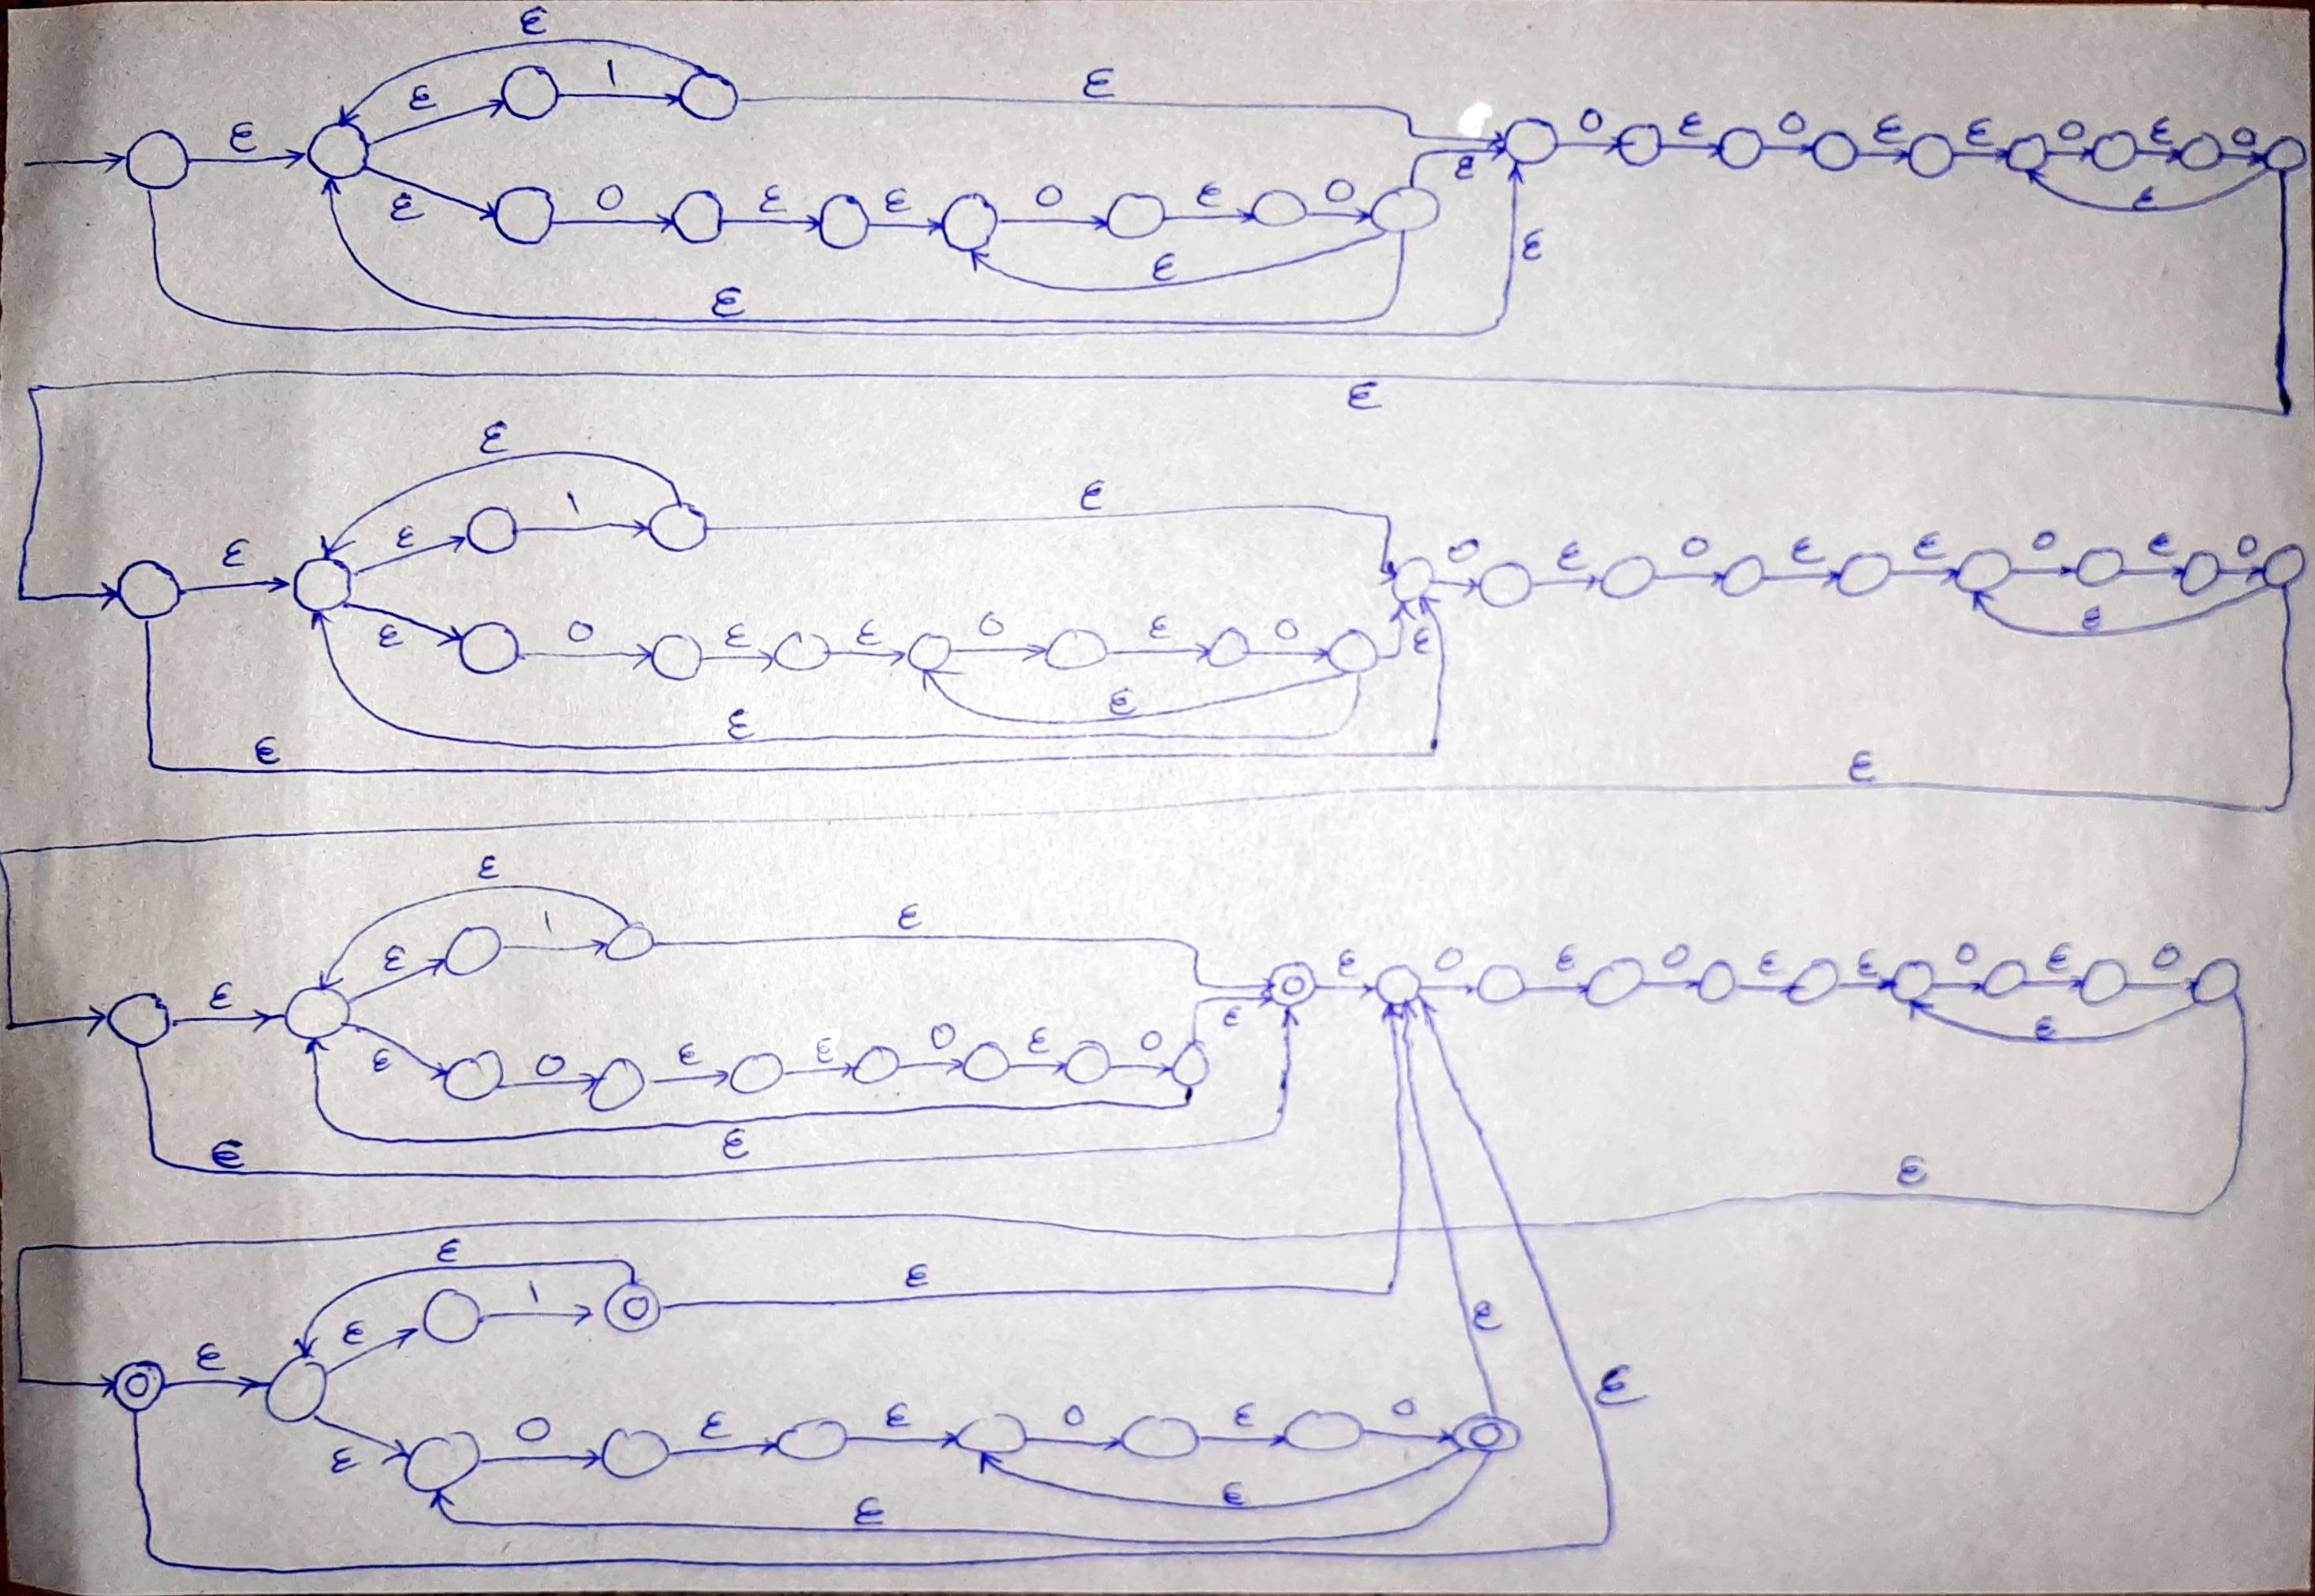 ε
ε 1 ε
ε 0 ε 0 ε ε 0 ε 0
ε ε
ε 0 ε ε 0 ε 0
ε
ε
ε
ε
ε
ε ε
1
ε ε 0 ε 0 ε ε 0 ε 0
ε
ε 0 ε ε 0 ε 0 ε
ε
ε
ε
ε
ε
ε
1
ε ε ε 0 ε 0 ε ε 0 ε 0
ε
ε 0 ε ε 0 ε 0
ε
ε
ε
ε
ε
1
ε
ε ε
ε
ε
ε 0 ε ε 0 ε 0
ε
ε